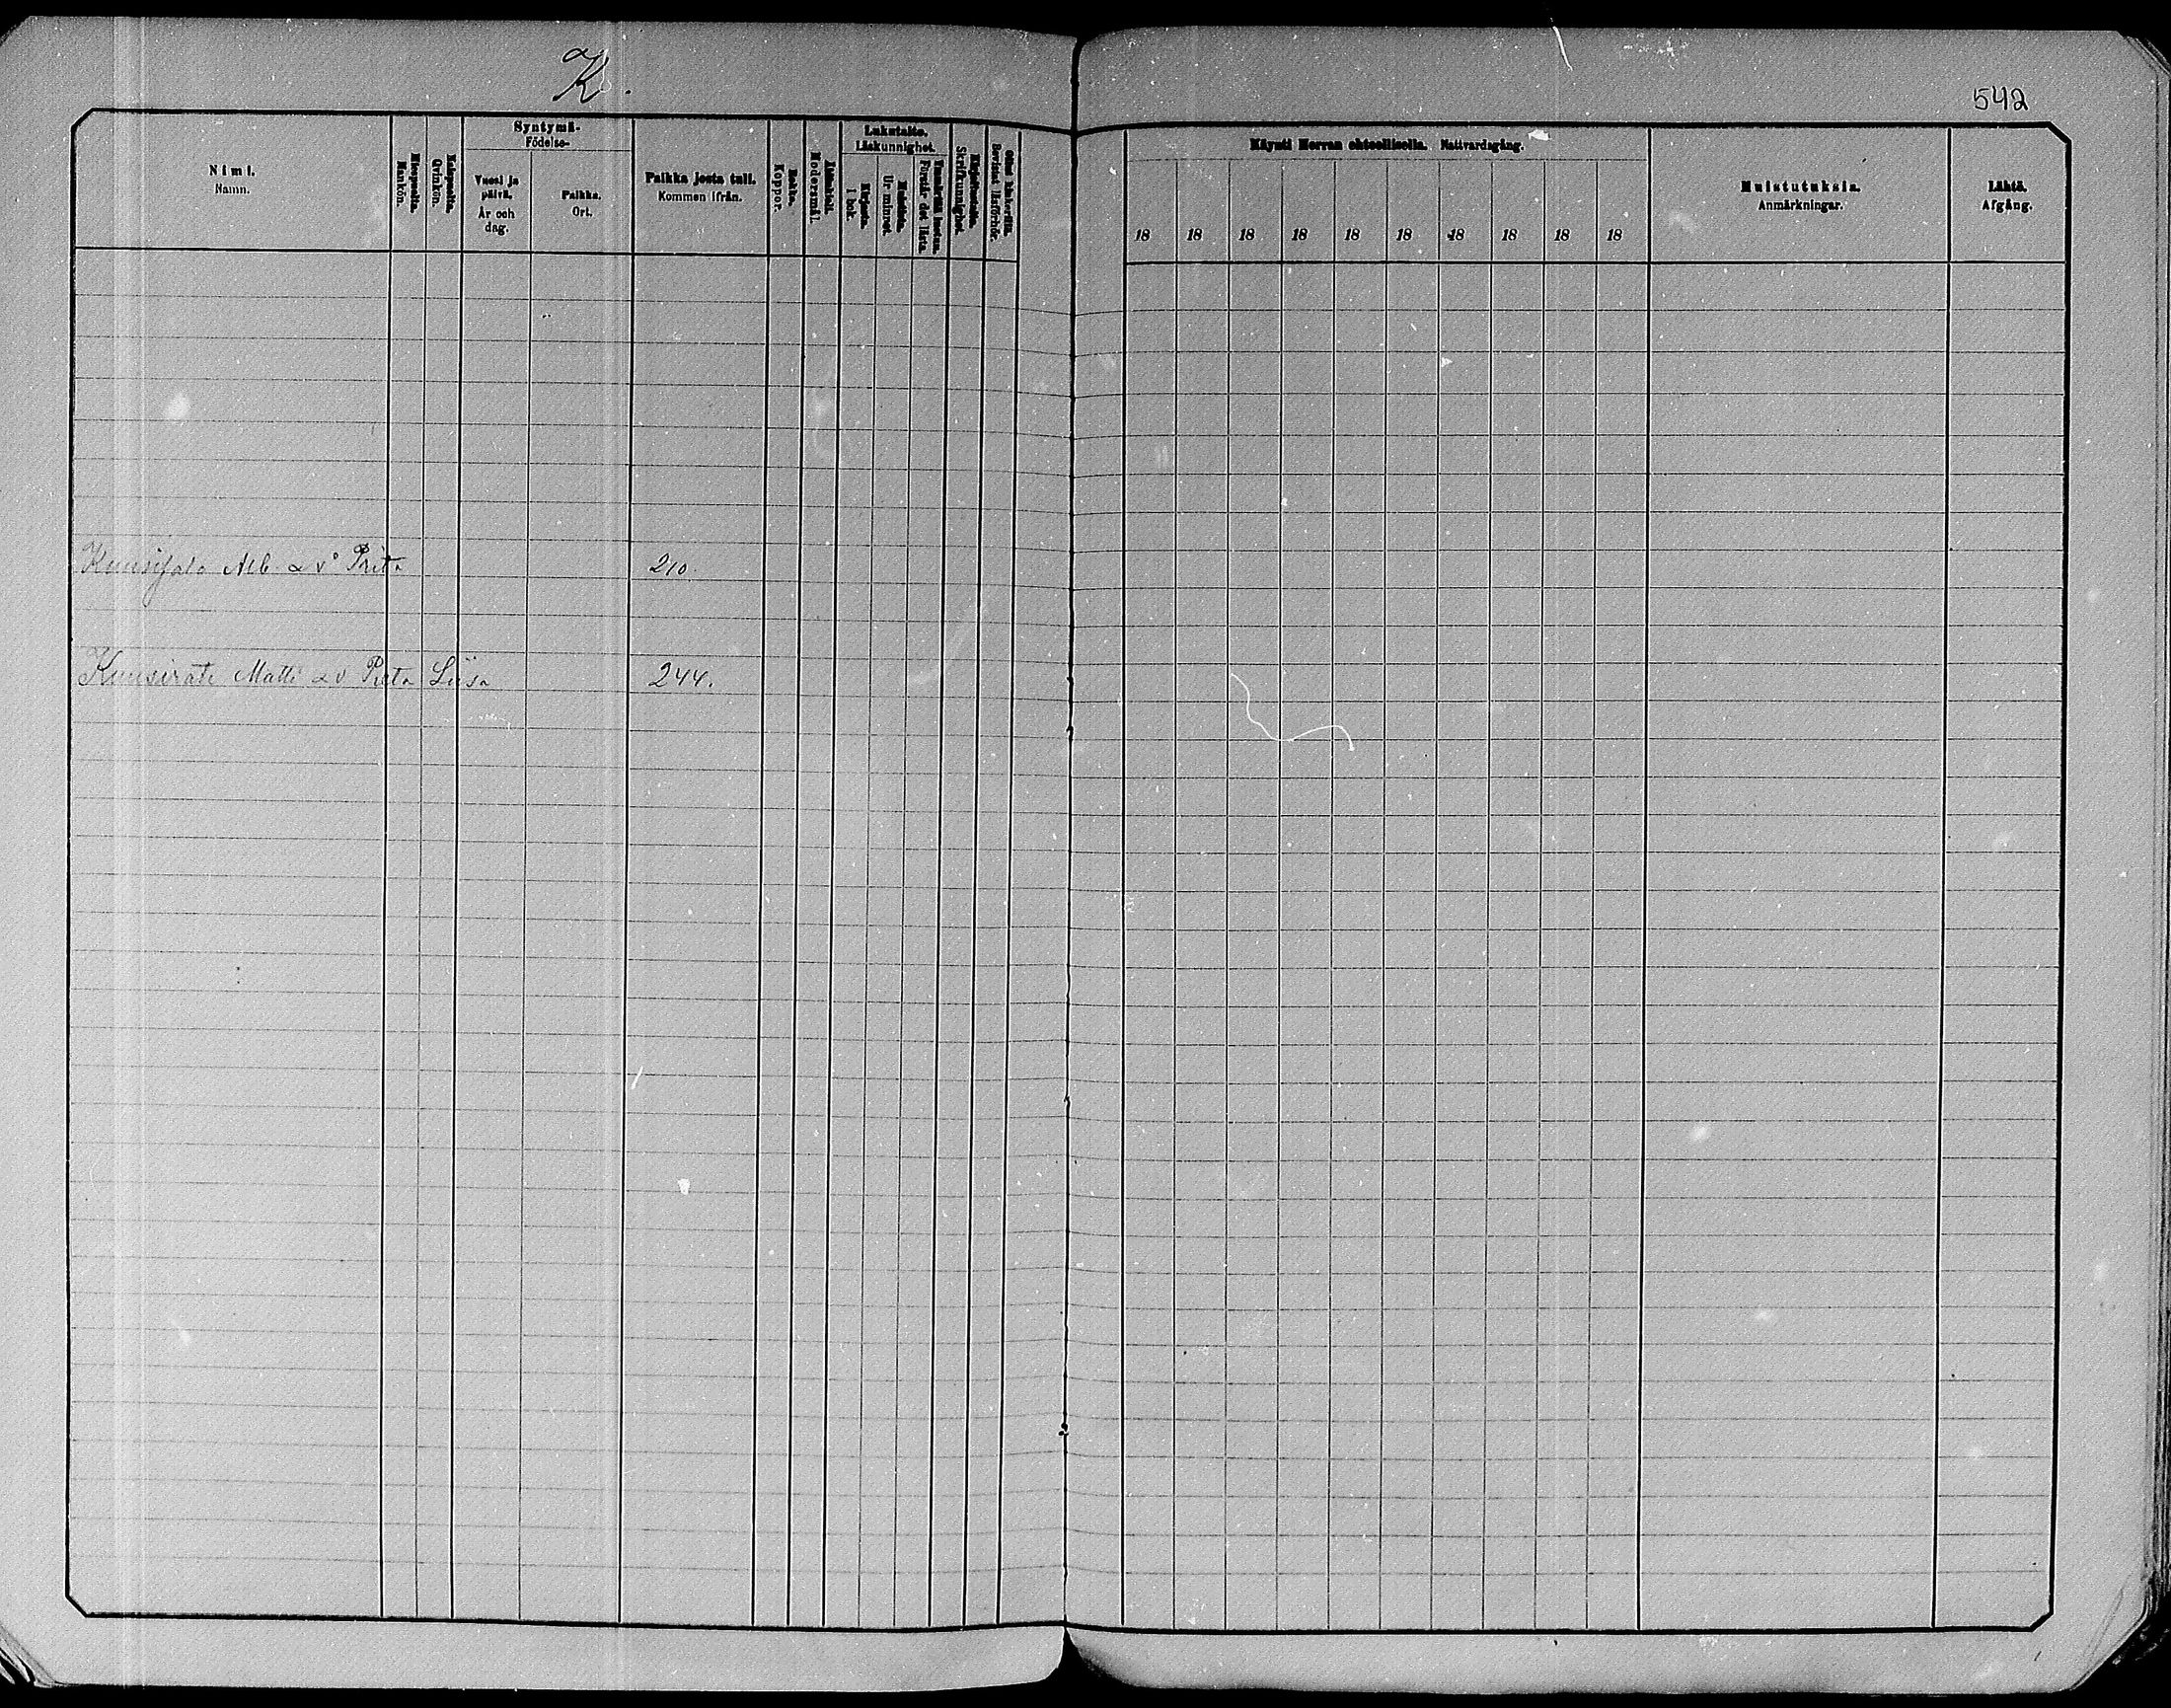 K.
542
Nimi.
Namn.
Miespuolia.
Mankön.
Vaispuolia.
Qvinkön.
Syntymä-
Födelse-
Vuosi ja
päivä.
År och
dag.
Paikka.
Ort.
Paikka josta tuli.
Kommen ifrån.
Rokko.
Koppor.
Äidinkieli.
Modersmål.
Lukutaito.
Läskunnighet.
Kirjasta.
I bok.
Ur minnet.
Förstår det lästa.
Kirjoitustaito.
Skrifkunnighet.
Bevistat läsförhör.
Käynti Herran ehtoollisella. Nattvardsgång.
18 18 18 18 18 18 18 18 18 18
Muistutuksia.
Anmärkningar.
Lähtö.
Afgång.
Kuusijala Alb. & v Prita 210.
Kuusirati Matti & v Prita Liisa 244.